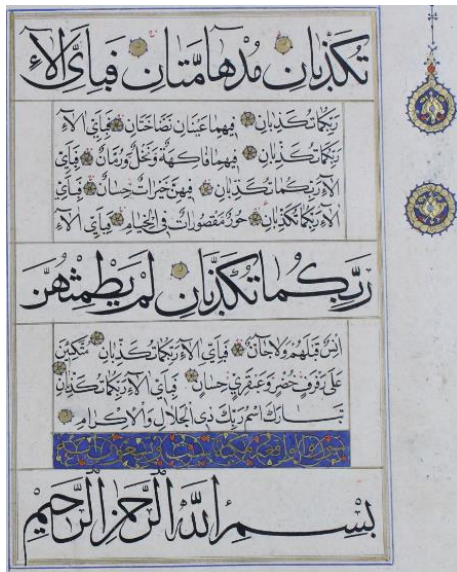 تُكَذِّبَانِ مُدْهَامَّتَانِ فَبِأَيِّ الاءِ
رَبِّكُمَا تُكَذِّبَانِ فِيهِمَا عَيْنَانِ نَضَّاخَتَانِ فَبِأَيِّ الاءِ
رَبِّكُمَا تُكَذِّبَانِ فِيهِمَا فَاكِهَةٌ وَنَخْلٌ وَرُمَّانٌ فَبِأَيِّ
الاءِ رَبِّكُمَا تُكَذِّبَانِ فِيهِنَّ خَيْرَاتٌ حِسَانٌ فَبِأَيِّ
الاءِ رَبِّكُمَا تُكَذِّبَانِ حُورٌ مَقْصُورَاتٌ فِي الْخِيَامِ فَبِأَيِّ الاءِ
رَبِّكُمَا تُكَذِّبَانِ لَمْ يَطْمِثْهُنَّ
اِنْسٌ قَبْلَهُمْ وَلَا جَانٌّ فَبِأَيِّ الاءِ رَبِّكُمَا تُكَذِّبَانِ مُتَّكِئِينَ
عَلَى رَفْرَفٍ خُضْرٍ وَعَبْقَرِيٍّ حِسَانٍ فَبِأَيِّ الاءِ رَبِّكُمَا تُكَذِّبَانِ
تَبَارَكَ اسْمُ رَبِّكَ ذِي الْجَلَالِ وَالْاِكْرَامِ
سورة الواقعة مكية
بِسْمِ اللَّهِ الرَّحْمَنِ الرَّحِيمِ